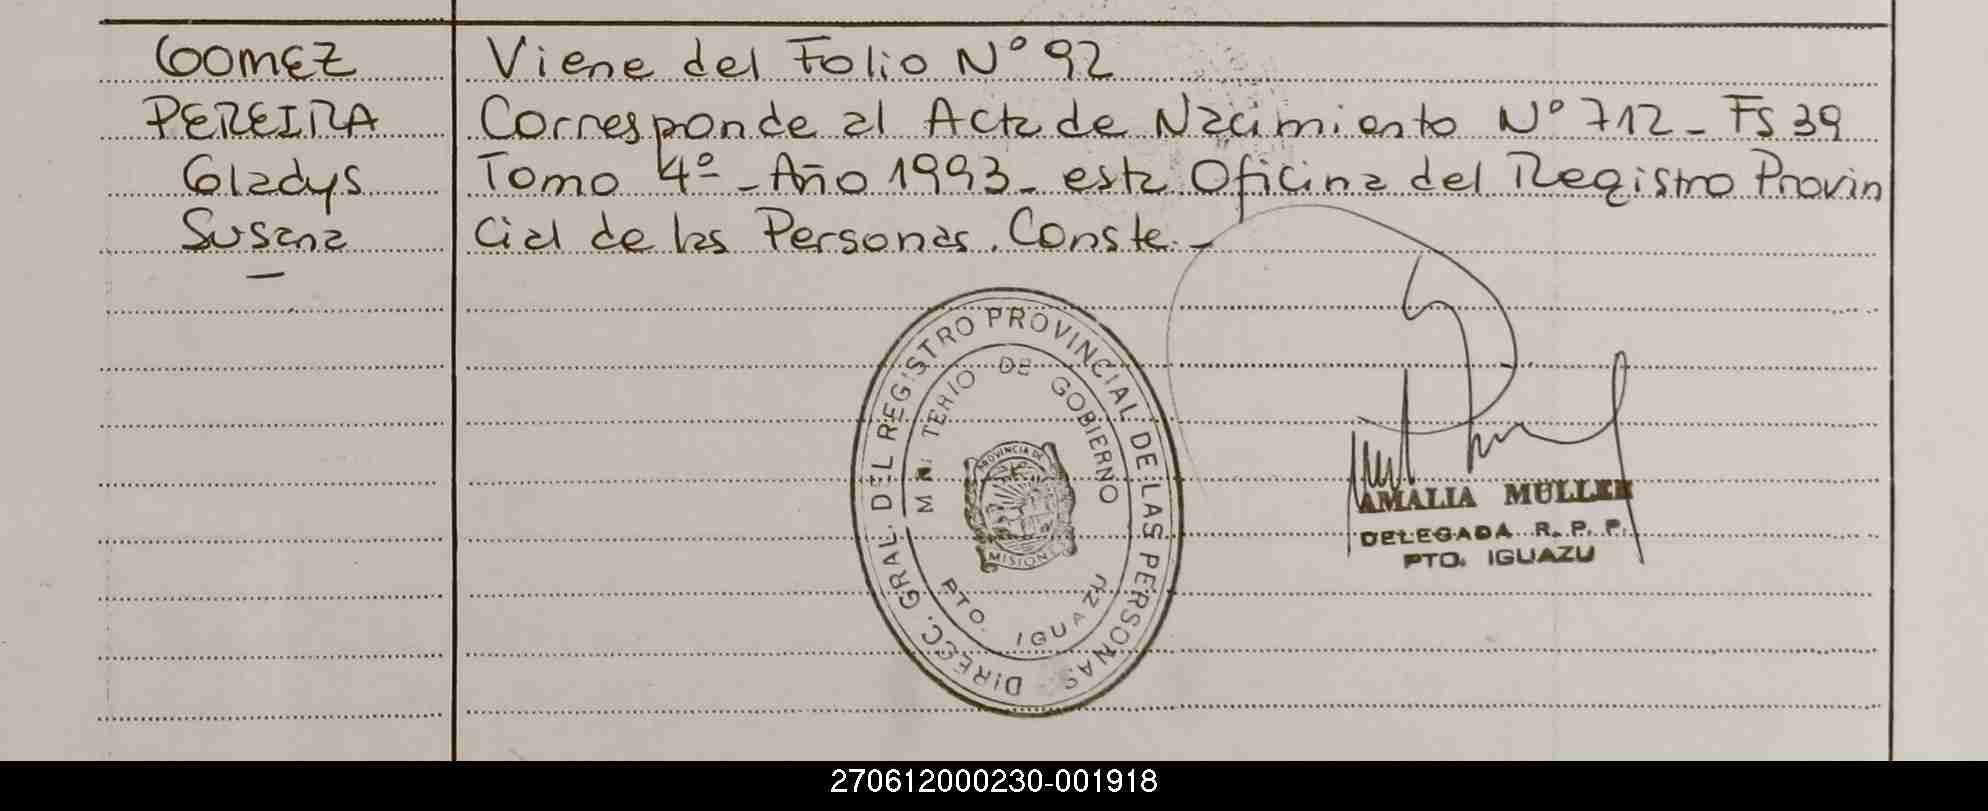 GOMEZ
PEREIRA
Gladys
Susana
Viene del Folio N° 92
Corresponde al Acta de Nacimiento N° 712 - Fs 39
Tomo 4º - Año 1993 - esta Oficina del Registro Provin
cial de las Personas. Conste. -
DIRECC. GRAL. DEL REGISTRO PROVINCIAL DE LAS PERSONAS
MINI TERIO DE GOBIERNO
PROVINCIA DE
MISIONES
PTO. IGUAZU
AMALIA MULLER
DELEGADA R. P. P.
PTO. IGUAZU
270612000230-001918